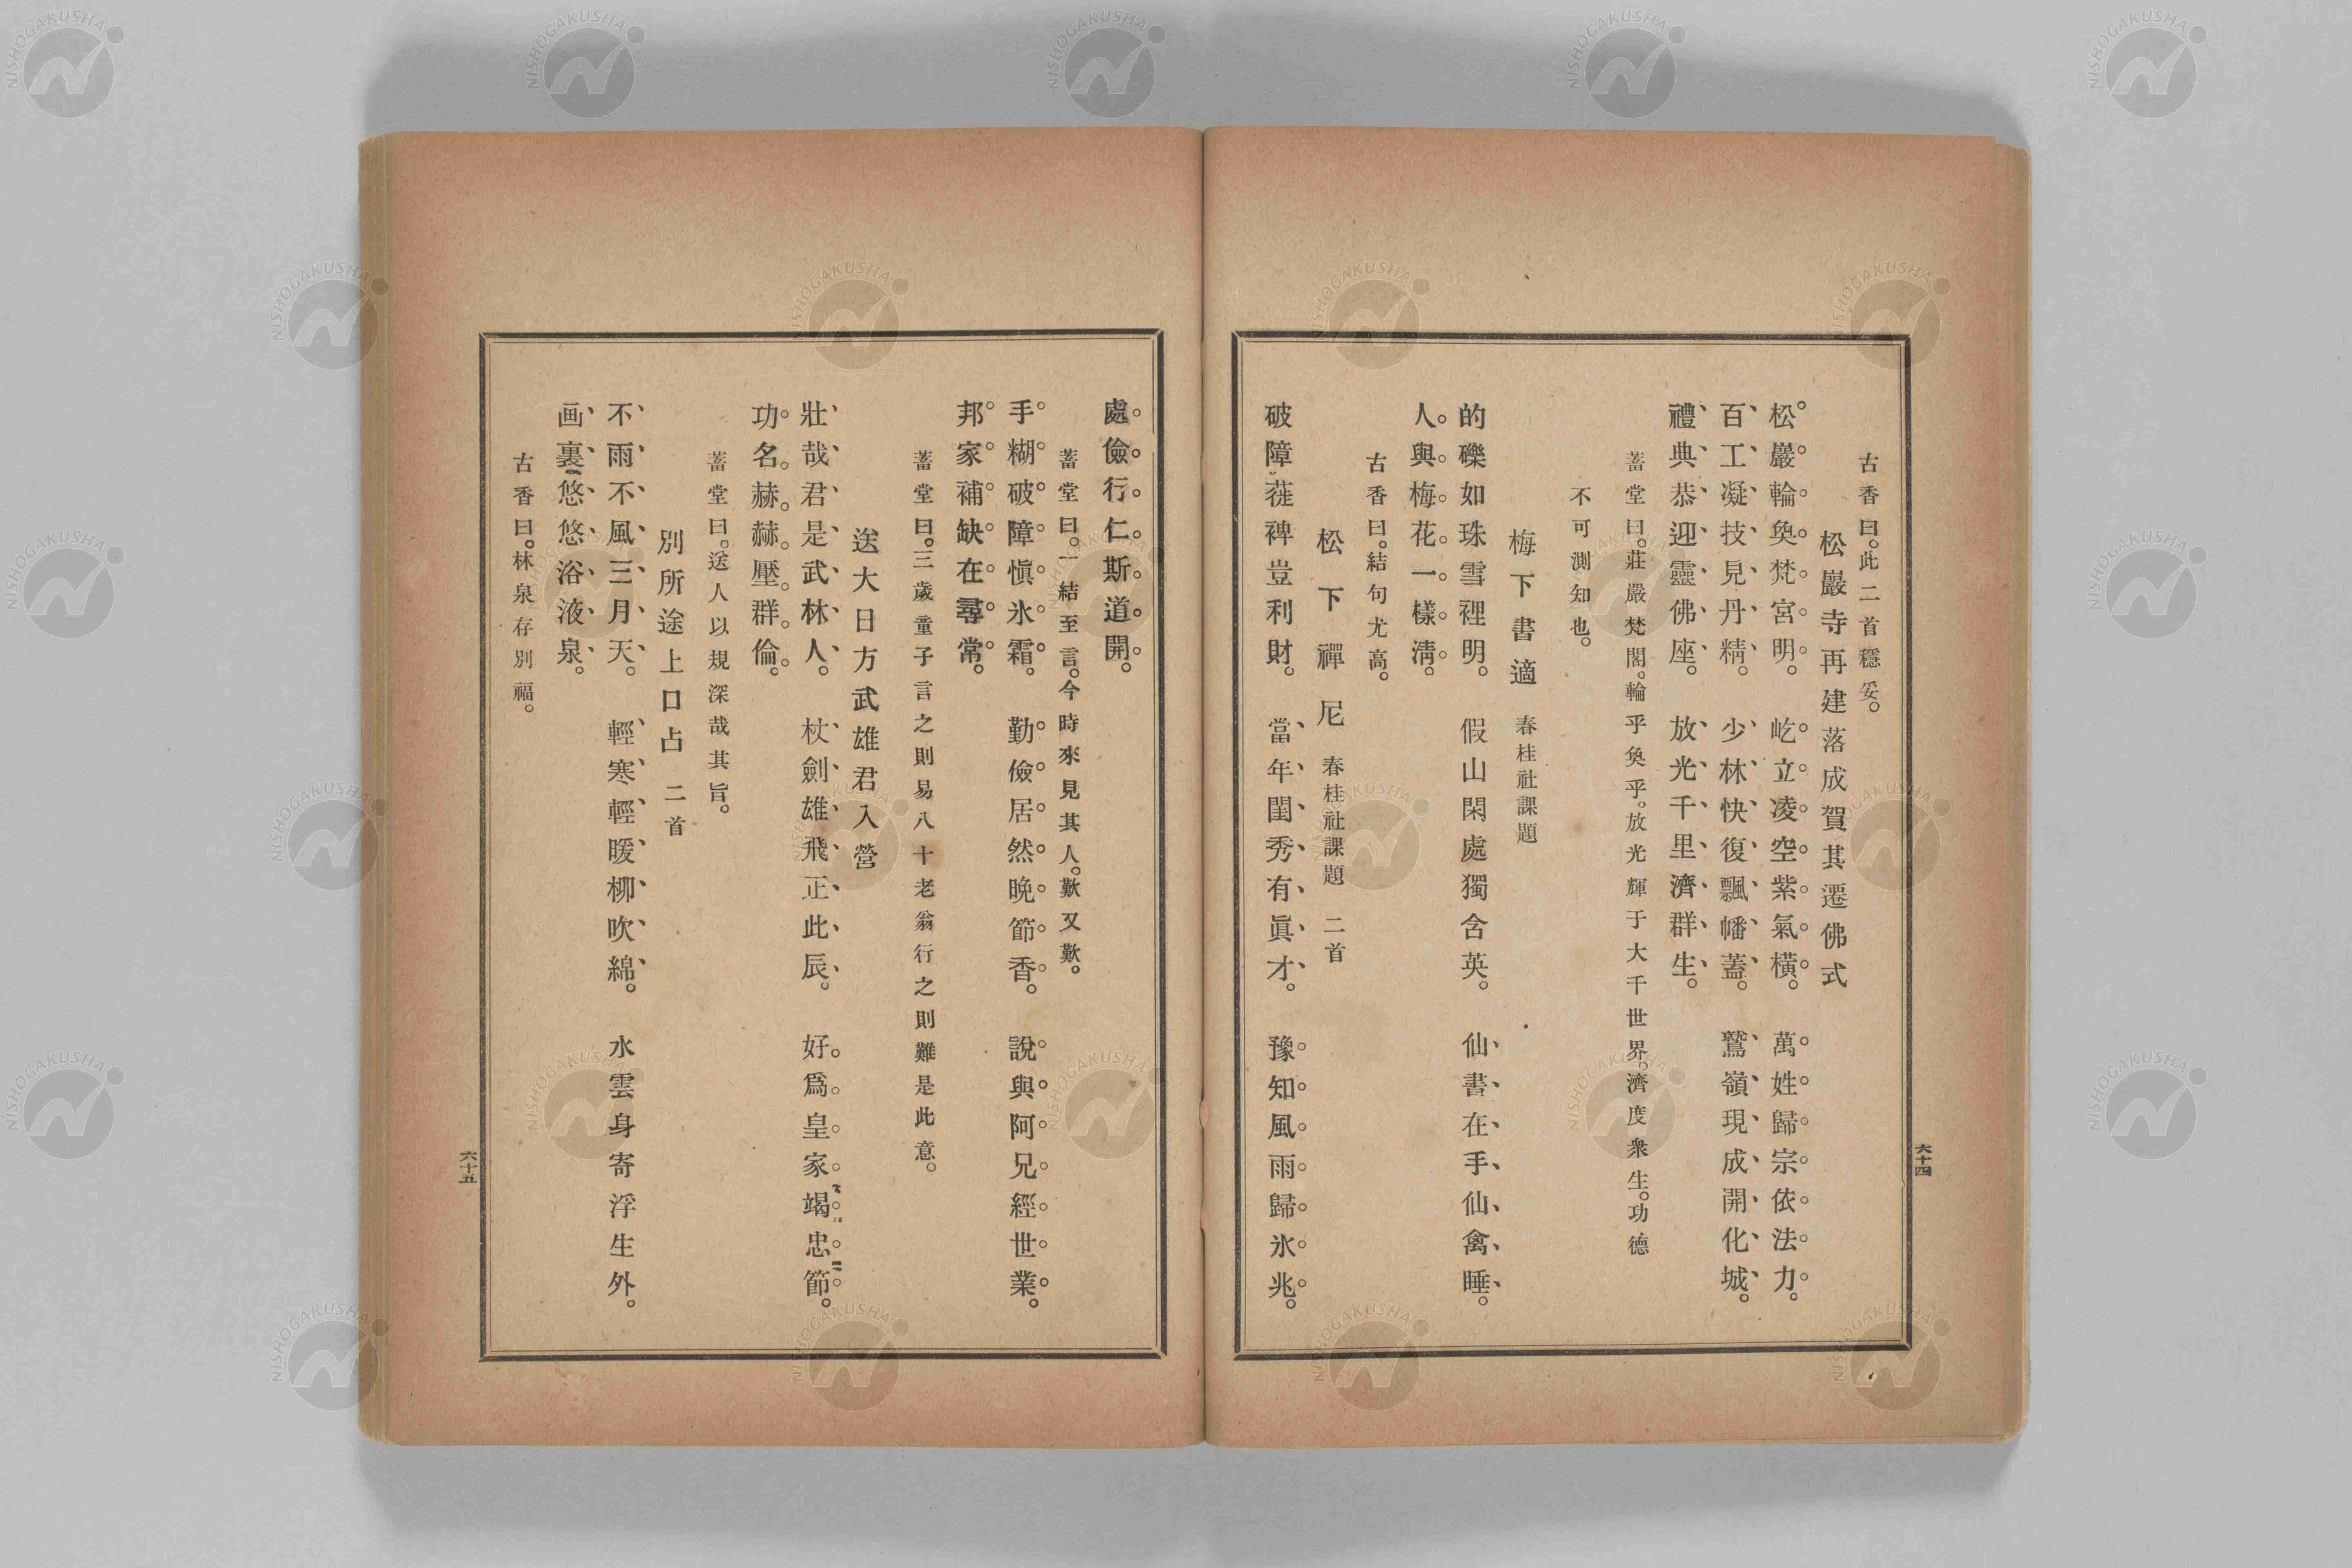 古香曰。此二首穩妥。
松巖寺再建落成賀其遷佛式
松巖輪奐梵宮明。 屹立凌空紫氣橫。 萬姓歸宗依法力。
百工凝技見丹精。 少林快復飄幡蓋。 鷲嶺現成開化城。
禮典恭迎靈佛座。 放光千里濟群生。
蓄堂曰。莊嚴梵閣。輪乎奐乎。放光輝于大千世界。濟度衆生。功德
不可測知也。
梅下書適 春桂社課題
的礫如珠雪裡明。 假山閑處獨含英。 仙書在手仙禽睡。
人與梅花一樣淸。
古香曰。結句尤高。
松下禪尼 春桂社課題 二首
破障蓰裨豈利財。 當年閨秀有眞才。 豫知風雨歸氷兆。
六十四
處儉行仁斯道開。
蓄堂曰。一結至言。今時來見其人。歎又歎。
手糊破障愼氷霜。 勤儉居然晩節香。 說與阿兄經世業。
邦家補缺在尋常。
蓄堂曰。三歲童子言之則易八十老翁行之則難是此意。
送大日方武雄君入營
壯哉君是武林人。 杖劍雄飛正此辰。 好爲皇家竭忠節。
功名赫赫壓群倫。
蓄堂曰。送人以規深哉其旨。
別所途上口占 二首
不雨不風三月天。 輕寒輕暖柳吹綿。 水雲身寄浮生外。
画裏悠悠浴液泉。
古香曰。林泉存別福。
六十五
NISHOGAKUSHA